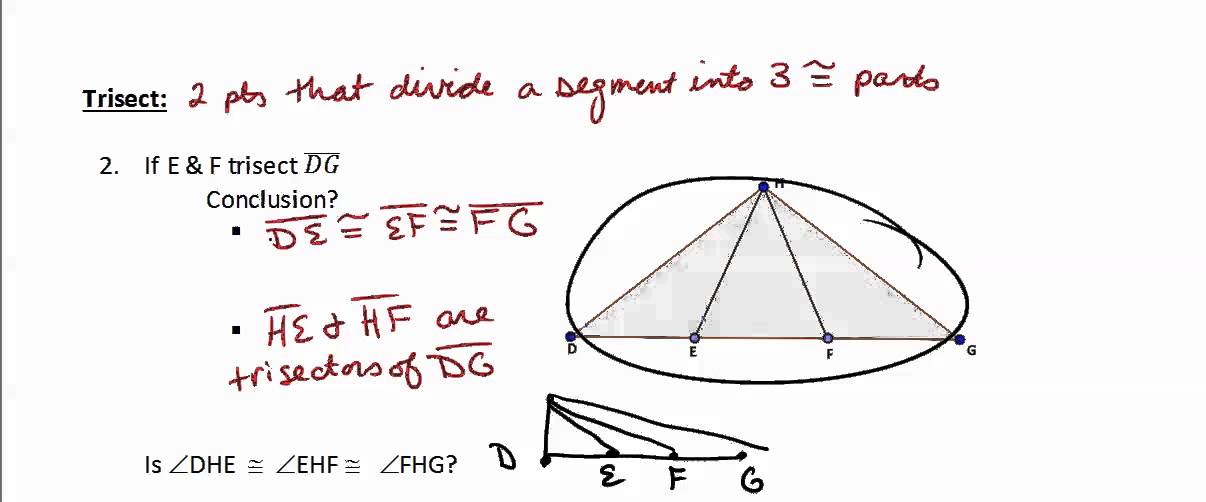 Trisect: 2 pts that divide a segment into 3 ≅ parts
2. If E & F trisect D̅G̅
Conclusion?
▪ D̅E̅ ≅ E̅F̅ ≅ F̅G̅
▪ H̅E̅ & H̅F̅ are
trisectors of D̅G̅
H
D
E
F
G
Is ∠DHE ≅ ∠EHF ≅ ∠FHG?
D
E
F
G